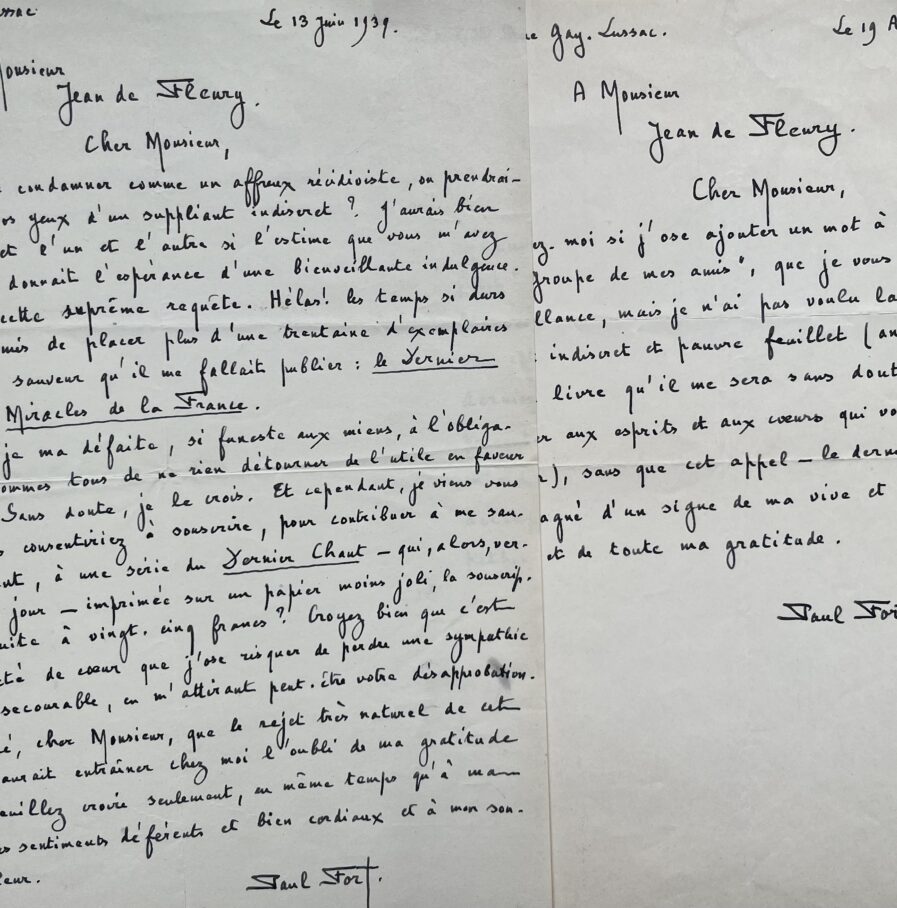 ussac.
Le 13 Juin 1939.
Monsieur
Jean de Fleury.
Cher Monsieur,
condamner comme un affreux récidiviste, ou prendrai-
os yeux d'un suppliant indiscret ? J'aurais bien
et l'un et l'autre si l'estime que vous m'avez
donnait l'espérance d'une bienveillante indulgence.
cette suprême requête. Hélas! les temps si durs
mis de placer plus d'une trentaine d'exemplaires
sauveur qu'il me fallait publier : le Dernier
Miracles de la France.
je ma défaite, si funeste aux miens, à l'obliga-
ommes tous de ne rien détourner de l'utile en faveur
Sans doute, je le crois. Et cependant, je viens vous
s consentiriez à souscrire, pour contribuer à me sau-
nt, à une série du Dernier Chant – qui, alors, ver-
jour – imprimée sur un papier moins joli, la souscrip-
uite à vingt-cinq francs ? Croyez bien que c'est
té de cœur que j'ose risquer de perdre une sympathie
secourable, en m'attirant peut-être votre désapprobation.
é, cher Monsieur, que le rejet très naturel de cet
aurait entraîner chez moi l'oubli de ma gratitude
euillez croire seulement, en même temps qu'à ma
es sentiments déférents et bien cordiaux et à mon son-
leur.
Paul Fort.
ue Gay-Lussac.
Le 19 A
A Monsieur
Jean de Fleury.
Cher Monsieur,
ez-moi si j'ose ajouter un mot à
groupe de mes amis", que je vous
llance, mais je n'ai pas voulu la
indiscret et pauvre feuillet (an
livre qu'il me sera sans dout
er aux esprits et aux cœurs qui vo
r), sans que cet appel – le dern
agné d'un signe de ma vive et
et de toute ma gratitude.
Paul For